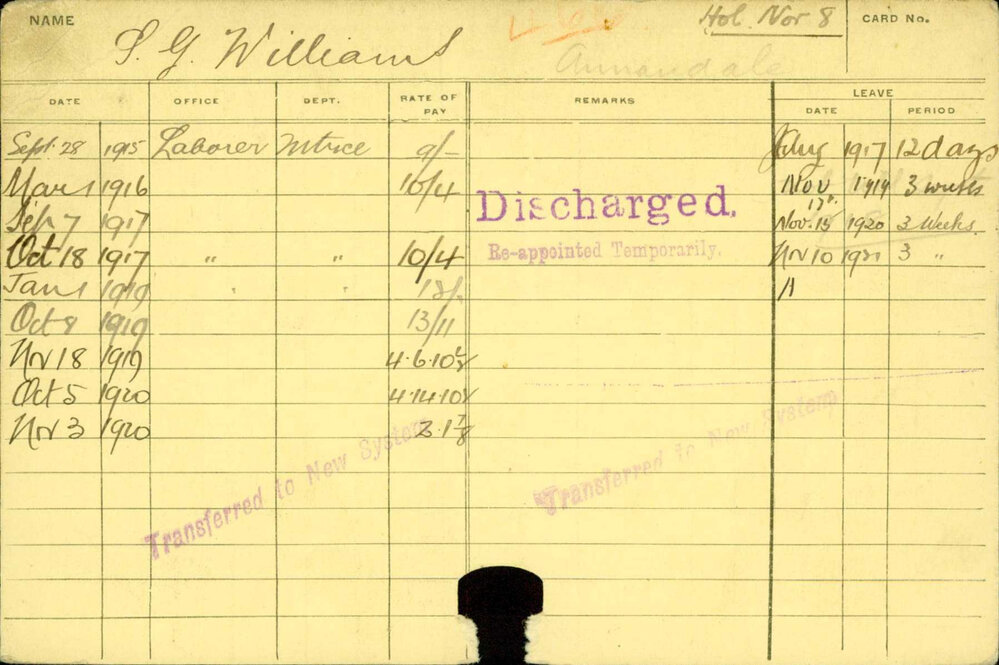 NAME S. G. Williams Hol. Nov 8 CARD No.
Annandale
DATE OFFICE DEPT. RATE OF PAY REMARKS LEAVE
DATE PERIOD
Sept. 28 1915 Laborer Mtrice 9/- July 1917 12 days
Mar 1 1916 10/4 Nov 1919 3 weeks
Discharged.
Sep 7 1917 Nov. 15 17 1920 3 Weeks
Oct 18 1917 " " 10/4 Re-appointed Temporarily. Nov 10 1921 3 "
Jan 1 1919 " "
Oct 8 1919 13/11
Nov 18 1919 4.6.10
Oct 5 1920 4.14.10
Nov 3 1920 2.1 7/8
Transferred to New System
Transferred to New System